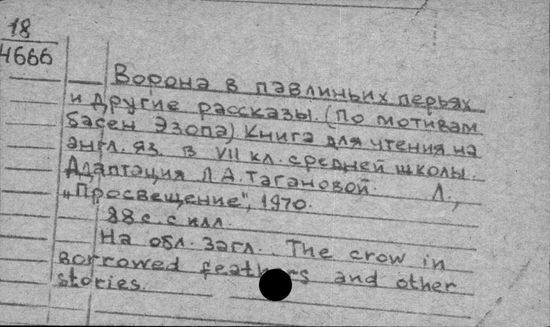 18
4666
Ворона в павлиньих перьях
и другие рассказы. (По мотивам
басен Эзопа) Книга для чтения на
англ. яз. в VII кл. средней школы.
Адаптация Л.А. Тагановой. Л.,
„Просвещение", 1970.
88 с. с илл.
На обл. загл. The crow in
borrowed feathers and other
stories.